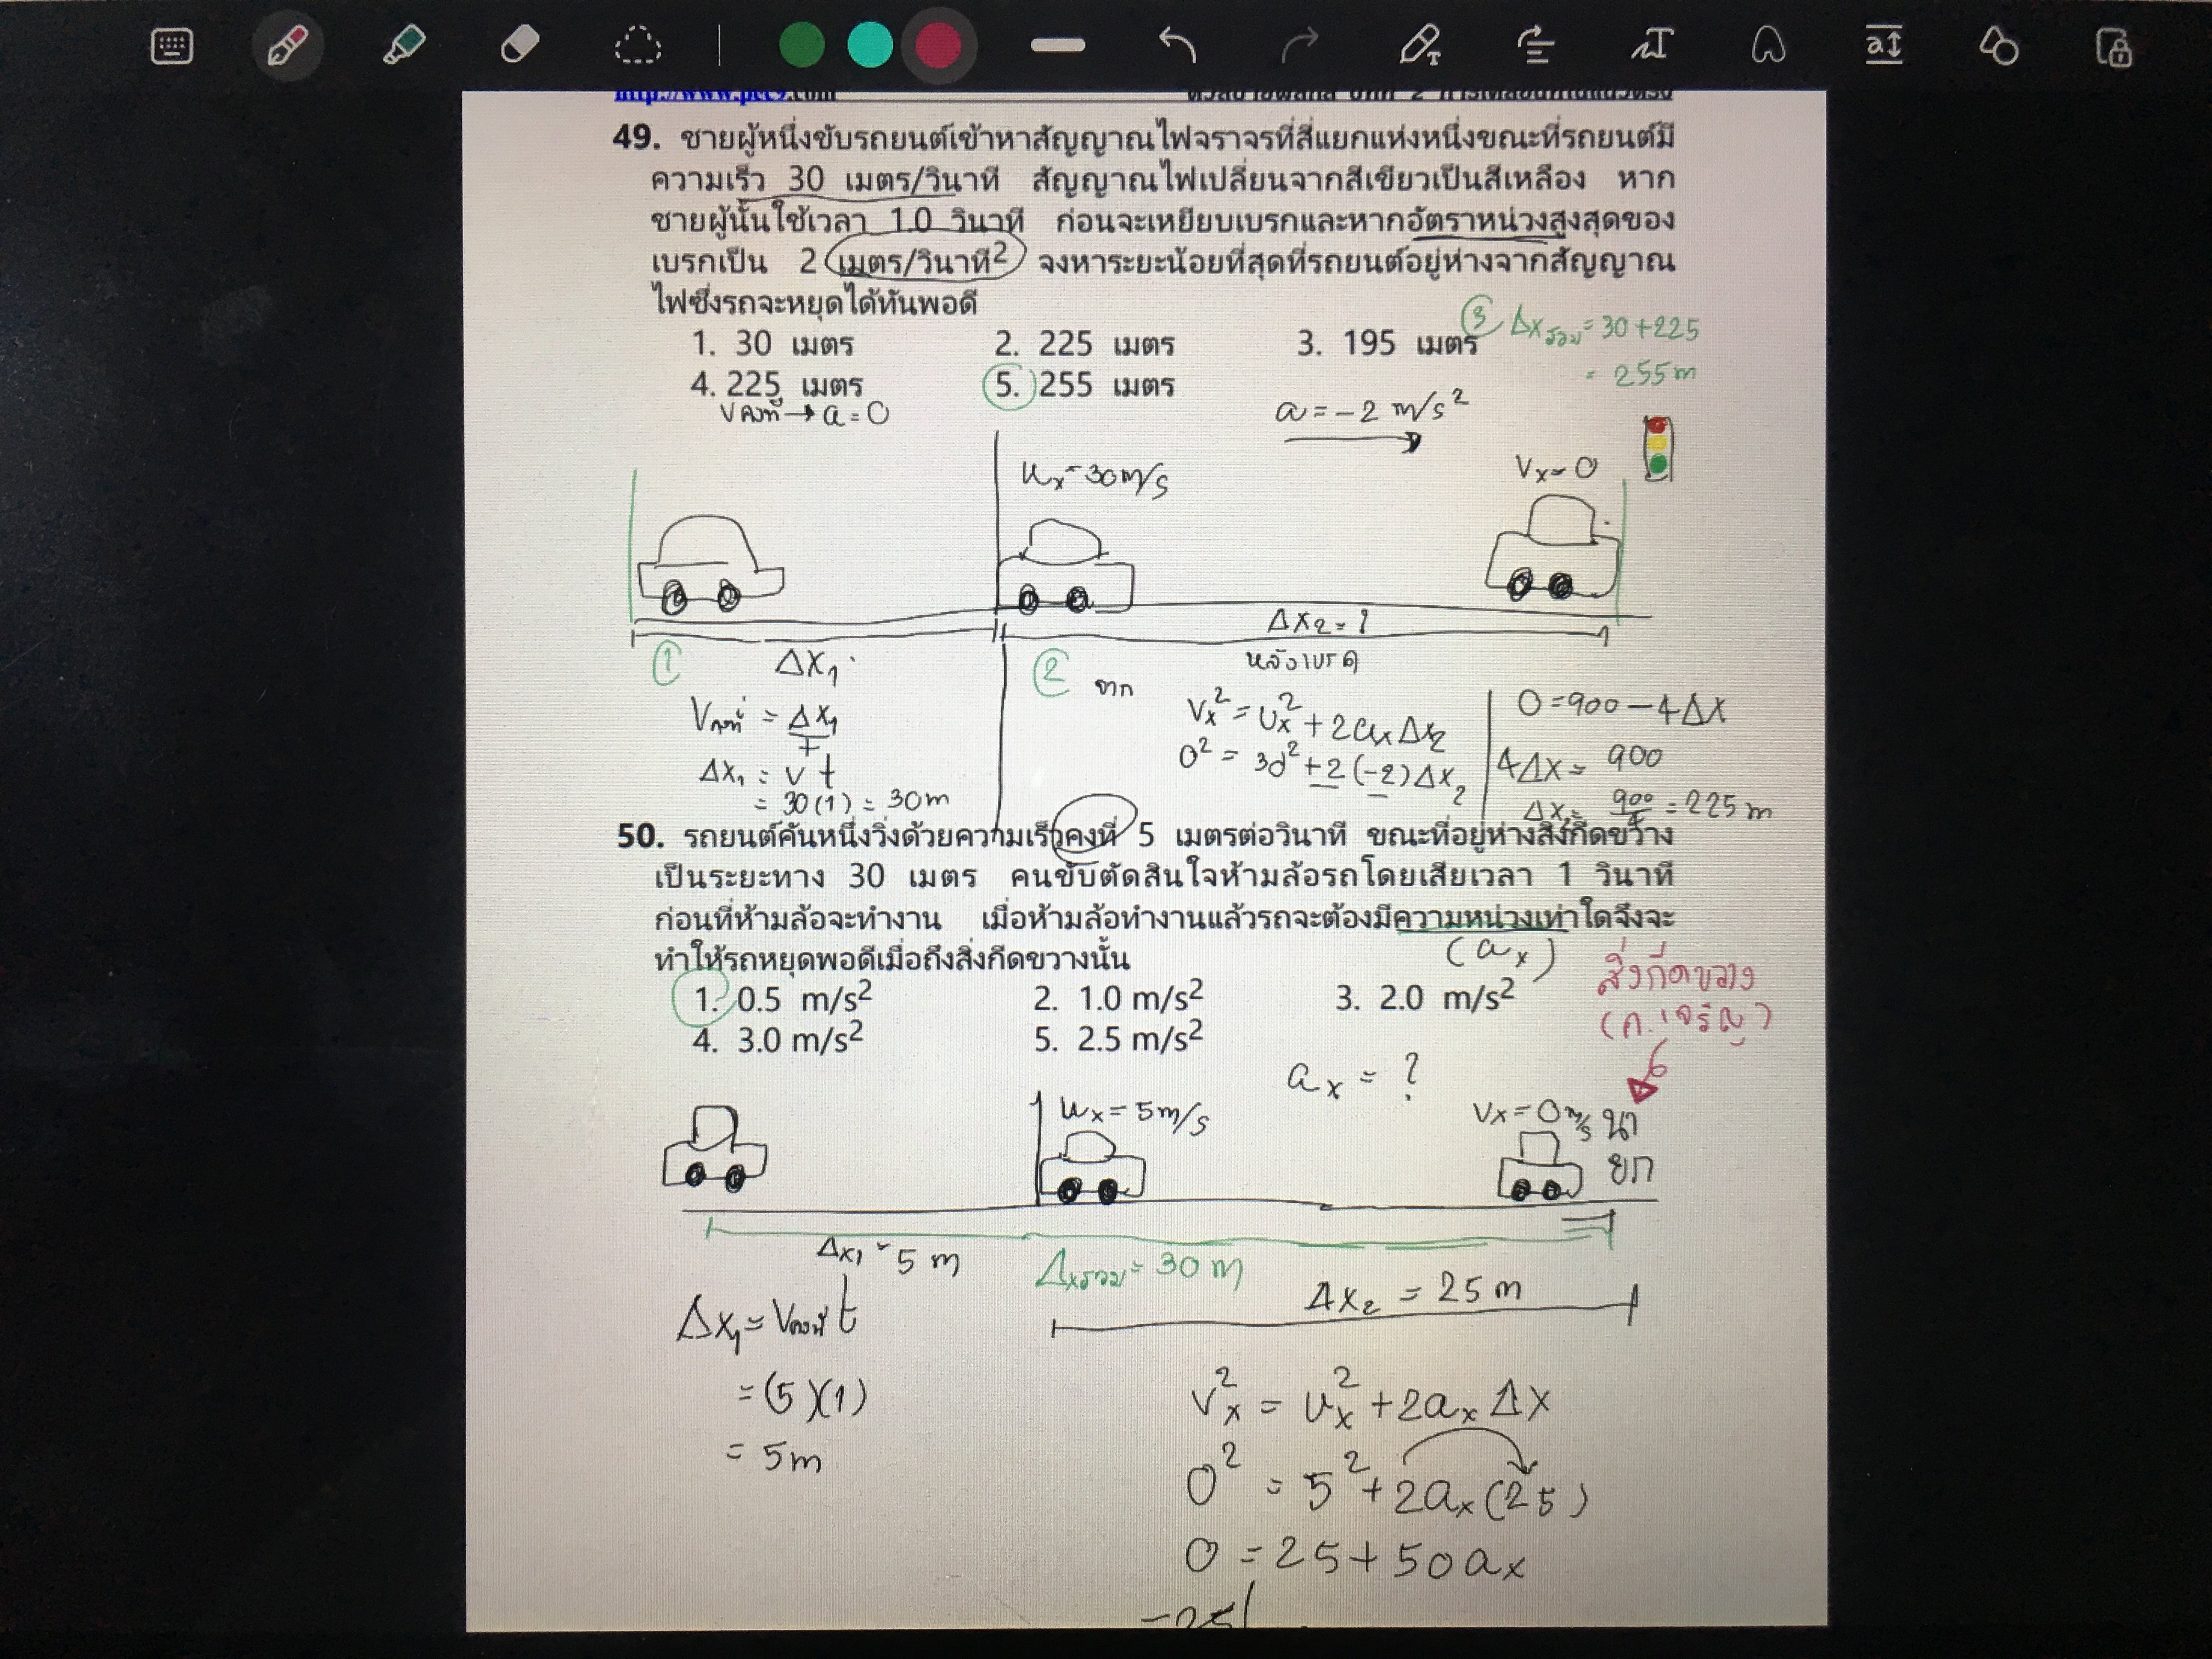 http://www.pec9.com
49. ชายผู้หนึ่งขับรถยนต์เข้าหาสัญญาณไฟจราจรที่สี่แยกแห่งหนึ่งขณะที่รถยนต์มี
ความเร็ว 30 เมตร/วินาที สัญญาณไฟเปลี่ยนจากสีเขียวเป็นสีเหลือง หาก
ชายผู้นั้นใช้เวลา 1.0 วินาที ก่อนจะเหยียบเบรกและหากอัตราหน่วงสูงสุดของ
เบรกเป็น 2 เมตร/วินาที² จงหาระยะน้อยที่สุดที่รถยนต์อยู่ห่างจากสัญญาณ
ไฟซึ่งรถจะหยุดได้ทันพอดี
1. 30 เมตร 2. 225 เมตร 3. 195 เมตร
③ Δx รวม = 30 + 225
= 255 m
4. 225 เมตร 5. 255 เมตร
V คงที่ → a = 0
a = -2 m/s²
ux = 30 m/s
Vx = 0
Δx2 = ?
① Δx1
② จาก
หลังเบรค
Vคงที่ = Δx1/t
Δx1 = v t
= 30(1) = 30 m
Vx² = ux² + 2ax Δx2
0² = 30² + 2(-2)Δx2
0 = 900 - 4Δx
4Δx = 900
Δx = 900/4 = 225 m
50. รถยนต์คันหนึ่งวิ่งด้วยความเร็วคงที่ 5 เมตรต่อวินาที ขณะที่อยู่ห่างสิ่งกีดขวาง
เป็นระยะทาง 30 เมตร คนขับตัดสินใจห้ามล้อรถโดยเสียเวลา 1 วินาที
ก่อนที่ห้ามล้อจะทำงาน เมื่อห้ามล้อทำงานแล้วรถจะต้องมีความหน่วงเท่าใดจึงจะ
ทำให้รถหยุดพอดีเมื่อถึงสิ่งกีดขวางนั้น
(ax)
1. 0.5 m/s² 2. 1.0 m/s² 3. 2.0 m/s²
4. 3.0 m/s² 5. 2.5 m/s²
สิ่งกีดขวาง
(ค.เจริญ)
ax = ?
ux = 5 m/s
Vx = 0 m/s
นา
ยก
Δx1 = 5 m
Δxรวม = 30 m
Δx2 = 25 m
Δx1 = Vคงที่ t
= (5)(1)
= 5 m
Vx² = ux² + 2ax Δx
0² = 5² + 2ax(25)
0 = 25 + 50ax